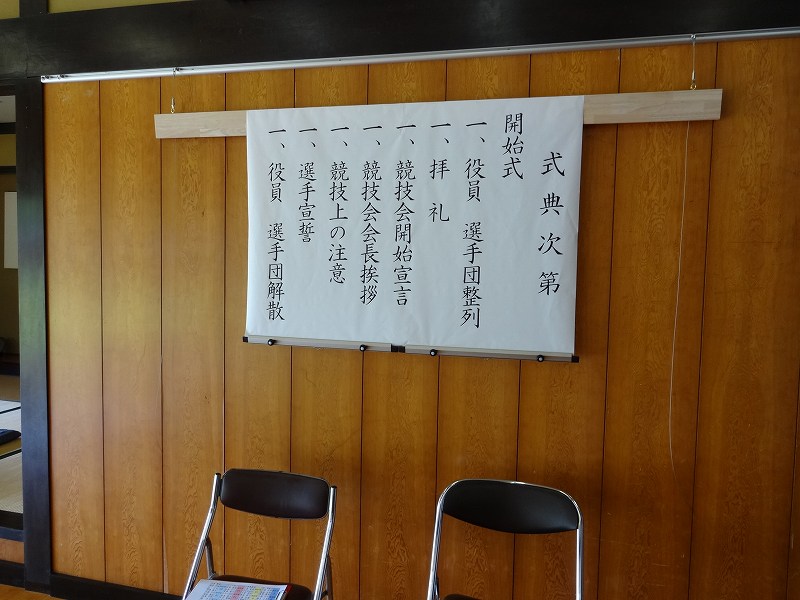 式典次第
開始式
一、役員　選手団整列
一、拝礼
一、競技会開始宣言
一、競技会会長挨拶
一、競技上の注意
一、選手宣誓
一、役員　選手団解散